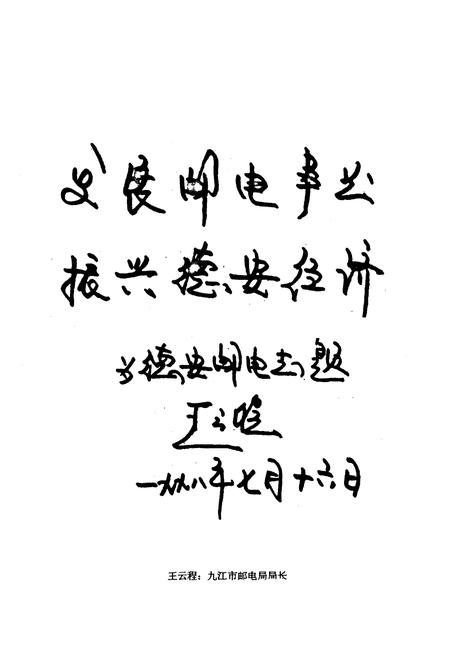 发展邮电事业
振兴德安经济
为德安邮电志题
王云程
一九九八年七月十六日
王云程：九江市邮电局局长